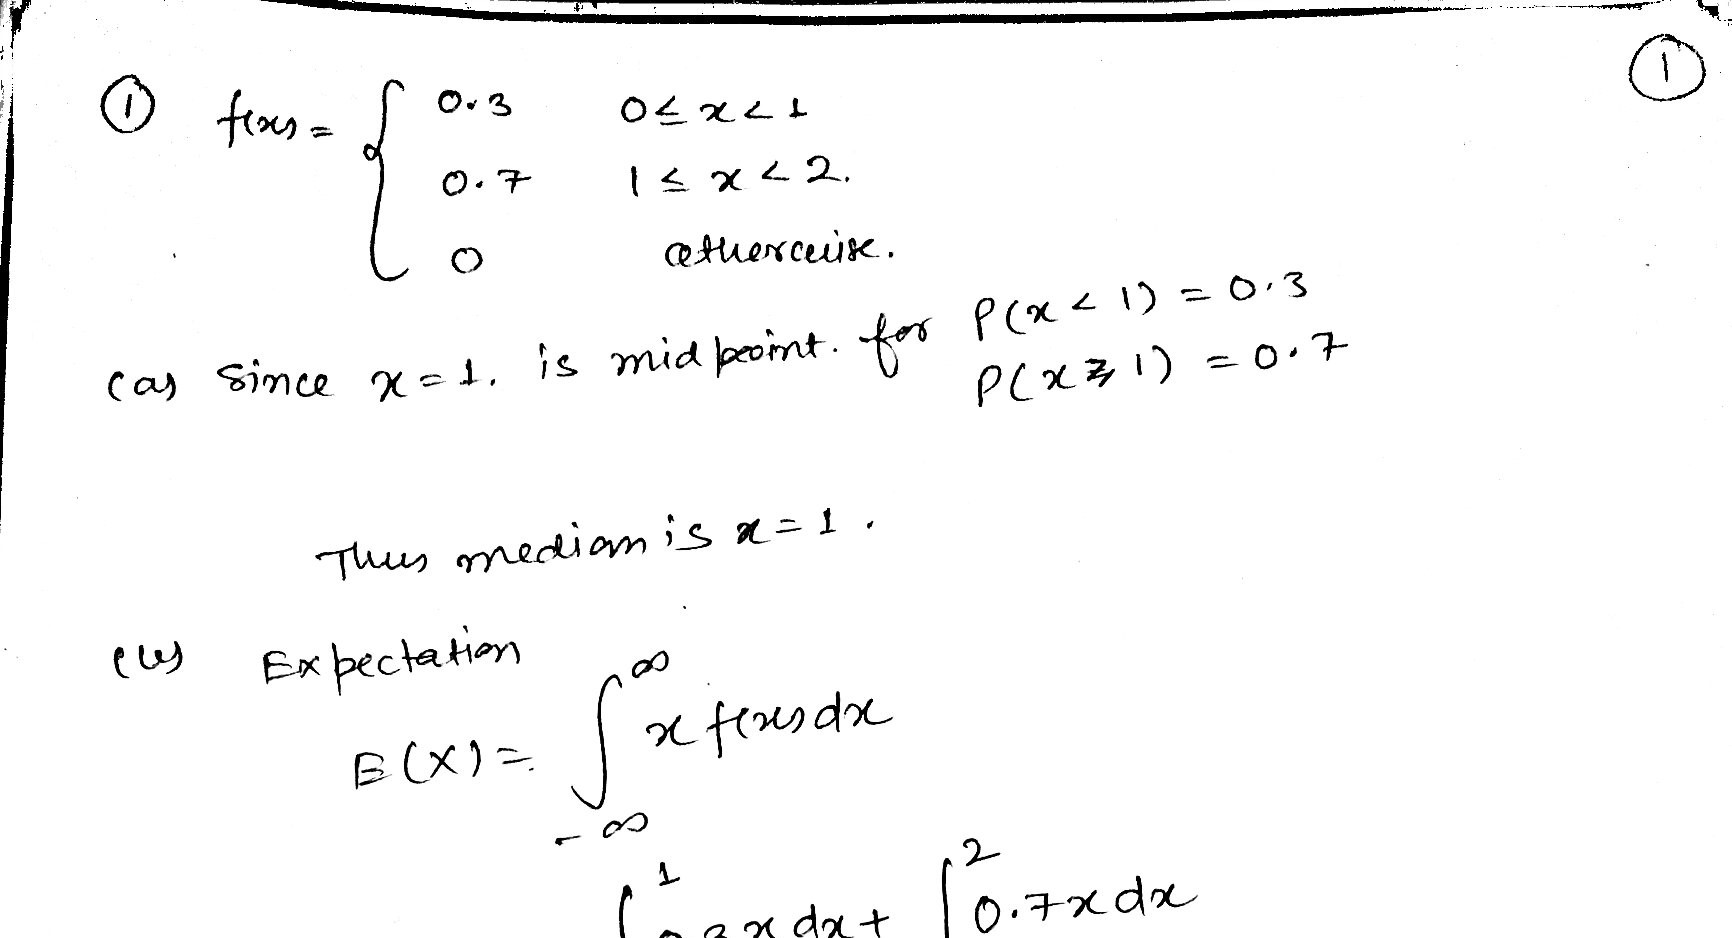 ① f(x) = { 0.3 0 ≤ x < 1
0.7 1 ≤ x < 2.
0 otherwise.
①
(a) Since x = 1. is mid point. for P(x < 1) = 0.3
P(x ≥ 1) = 0.7
Thus median is x = 1.
(b) Expectation
E(X) = ∫_{-∞}^{∞} x f(x) dx
∫^{1} 0.3 x dx + ∫^{2} 0.7x dx